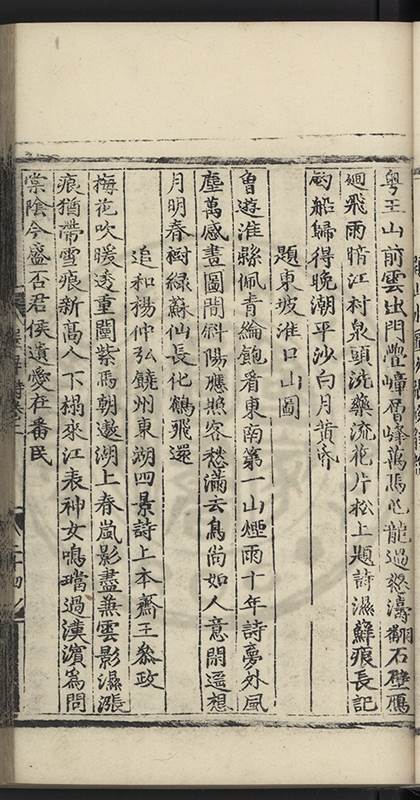 粤王山前雲出門嶒嶸層峰萬馬屯龍過怒濤翻石壁鴈
廻飛雨暗江村泉頭洗藥流花片松上題詩濕蘚痕長記
釣船歸得晚潮平沙白月黄昏
題東坡淮口山圖
曽遊淮縣佩青綸飽看東南第一山煙雨十年詩夢外風
塵萬感畫圖間斜陽應照客愁滿去鳥尚如人意閒遥想
月明春樹緑蘇仙長化鶴飛還
追和楊仲弘饒州東湖四景詩上本齋王叅政
梅花吹暖透重闉紫馬朝遨湖上春嵐影盡兼雲影濕漲
痕猶帶雪痕新高人下榻來江表神女鳴璫過漢濱為問
棠陰今盛否君侯遺愛在番民